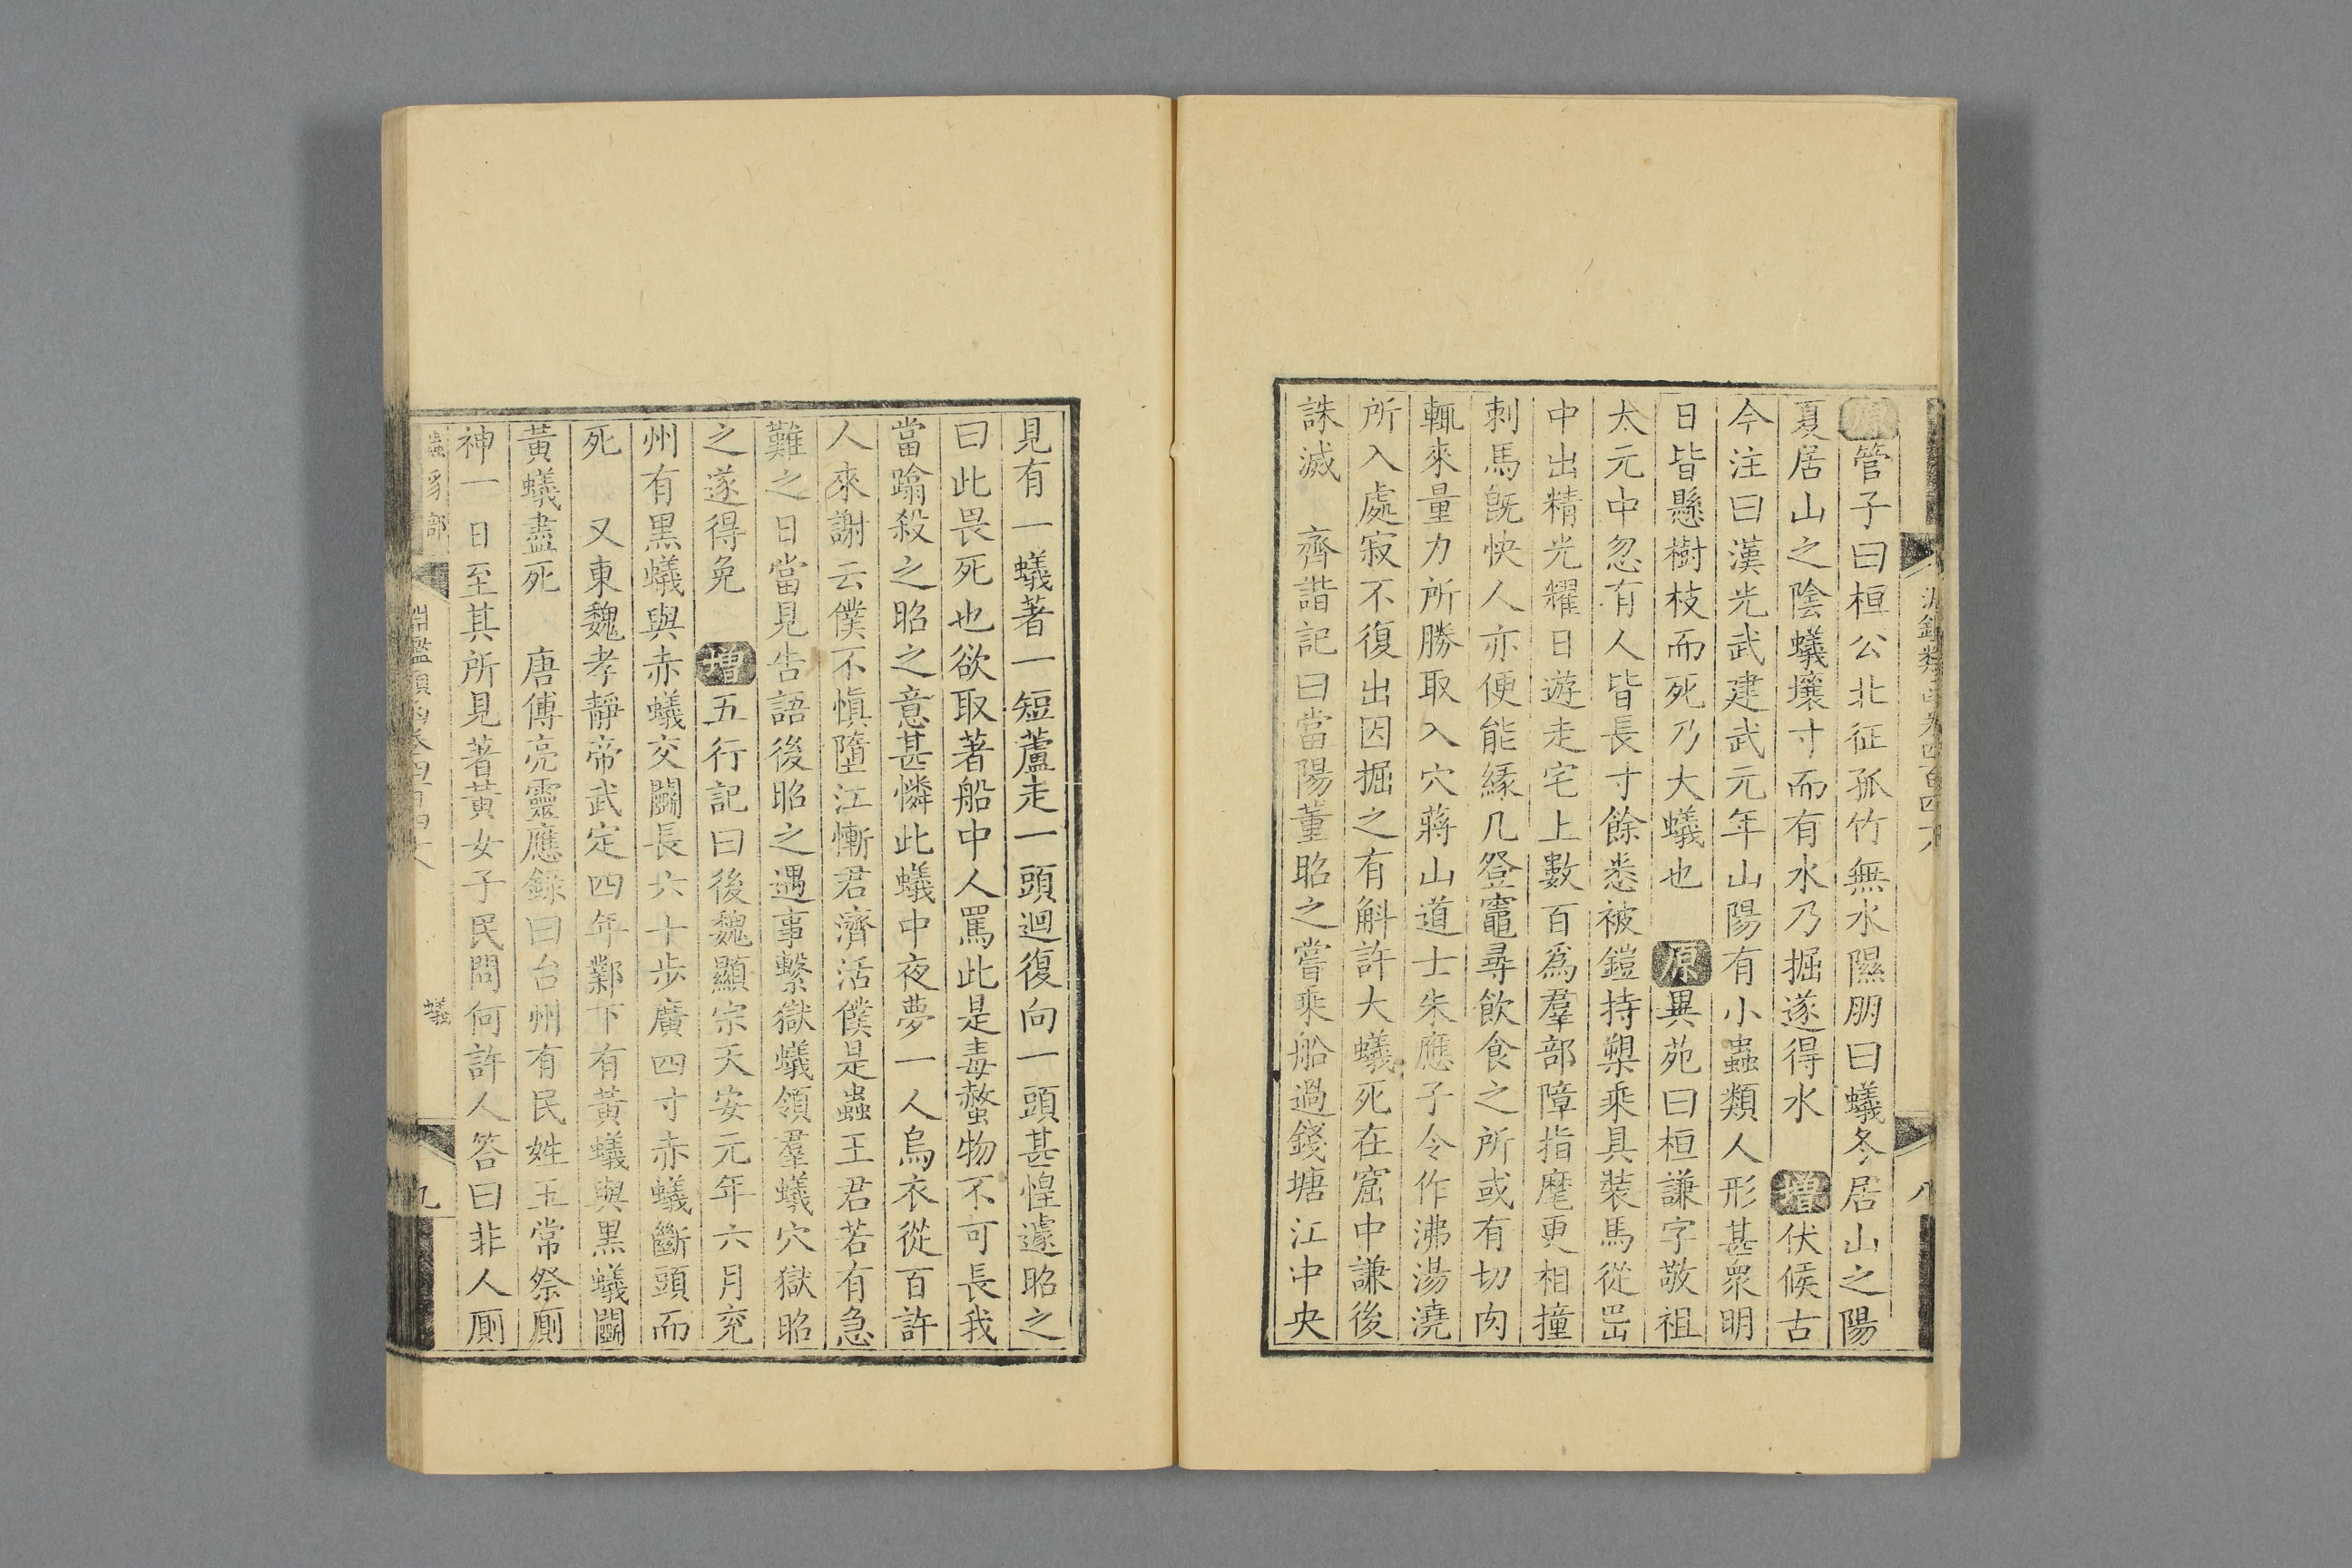 原管子曰桓公北征孤竹無水隰朋曰蟻冬居山之陽
夏居山之陰蟻壤寸而有水乃掘遂得水　增伏候古
今注曰漢光武建武元年山陽有小蟲類人形甚衆明
日皆懸樹枝而死乃大蟻也　原異苑曰桓謙字敬祖
太元中忽有人皆長寸餘悉被鎧持槊乘具裝馬從岊
中出精光耀日遊走宅上數百爲羣部障指麾更相撞
刺馬旣快人亦便能緣几登竈尋飲食之所或有切肉
輒來量力所勝取入穴蔣山道士朱應子令作沸湯澆
所入處寂不復出因掘之有斛許大蟻死在窟中謙後
誅滅　齊諧記曰當陽董昭之嘗乘船過錢塘江中央
見有一蟻著一短蘆走一頭迴復向一頭甚惶遽昭之
曰此畏死也欲取著船中人罵此是毒螫物不可長我
當蹹殺之昭之意甚憐此蟻中夜夢一人烏衣從百許
人來謝云僕不慎墮江慚君濟活僕是蟲王君若有急
難之日當見告語後昭之遇事繫獄蟻領羣蟻穴獄昭
之遂得免　增五行記曰後魏顯宗天安元年六月兗
州有黑蟻與赤蟻交鬭長六十步廣四寸赤蟻斷頭而
死　又東魏孝靜帝武定四年鄴下有黃蟻與黑蟻鬭
黃蟻盡死　唐傅亮靈應錄曰台州有民姓王常祭厠
神一日至其所見著黃女子民問何許人答曰非人厠
蟲豸部　淵鑑類函卷四百四十八　蟻　九